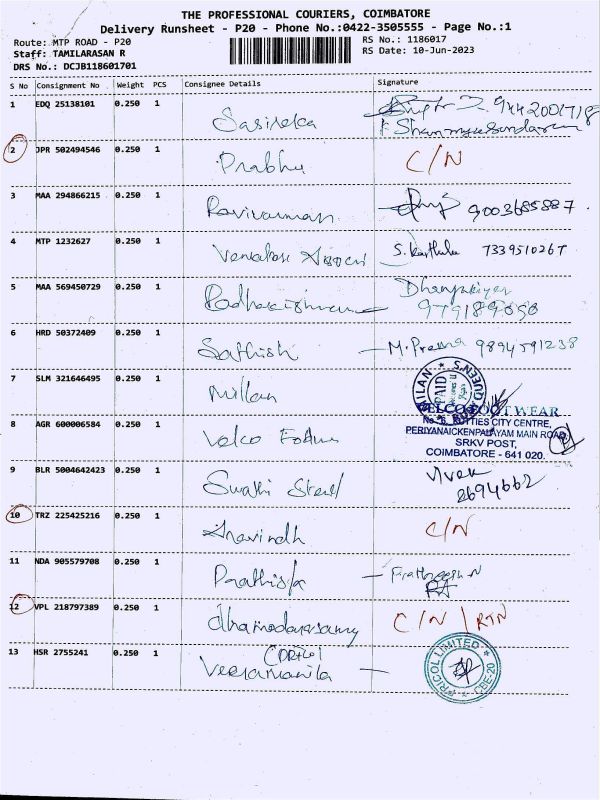 THE PROFESSIONAL COURIERS, COIMBATORE
Delivery Runsheet - P20 - Phone No.:0422-3505555 - Page No.:1
Route: MTP ROAD - P20
RS No.: 1186017
Staff: TAMILARASAN R
RS Date: 10-Jun-2023
DRS No.: DCJB118601701
S No Consignment No Weight PCS Consignee Details Signature
1 EDQ 25138101 0.250 1
9442001718
2 JPR 502494546 0.250 1 Prabhu C/N
3 MAA 294866215 0.250 1 Ravivarman 9003685887
4 MTP 1232627 0.250 1 7339510267
5 MAA 569450729 0.250 1
6 HRD 50372409 0.250 1 Sathish 9894591238
7 SLM 321646495 0.250 1 Millan
PAID
8 AGR 600006584 0.250 1 Velco
VELCO FOOTWEAR
CITY CENTRE,
PERIYANAICKENPALAYAM MAIN ROAD
SRKV POST,
COIMBATORE - 641 020.
9 BLR 5004642423 0.250 1 Swathi Steel Vivek
2694662
10 TRZ 225425216 0.250 1 Aravindh C/N
11 NDA 905579708 0.250 1
12 VPL 218797389 0.250 1 C/N / RTN
13 HSR 2755241 0.250 1
RICOL LIMITED CBE-20